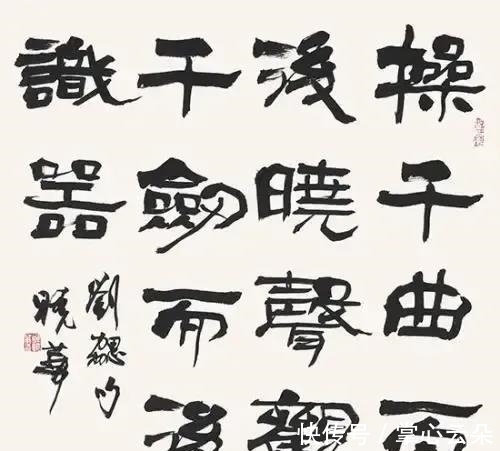 操千曲而
後曉聲觀
千劍而後
識器
劉勰句
曉
快传号 / 掌心云朵